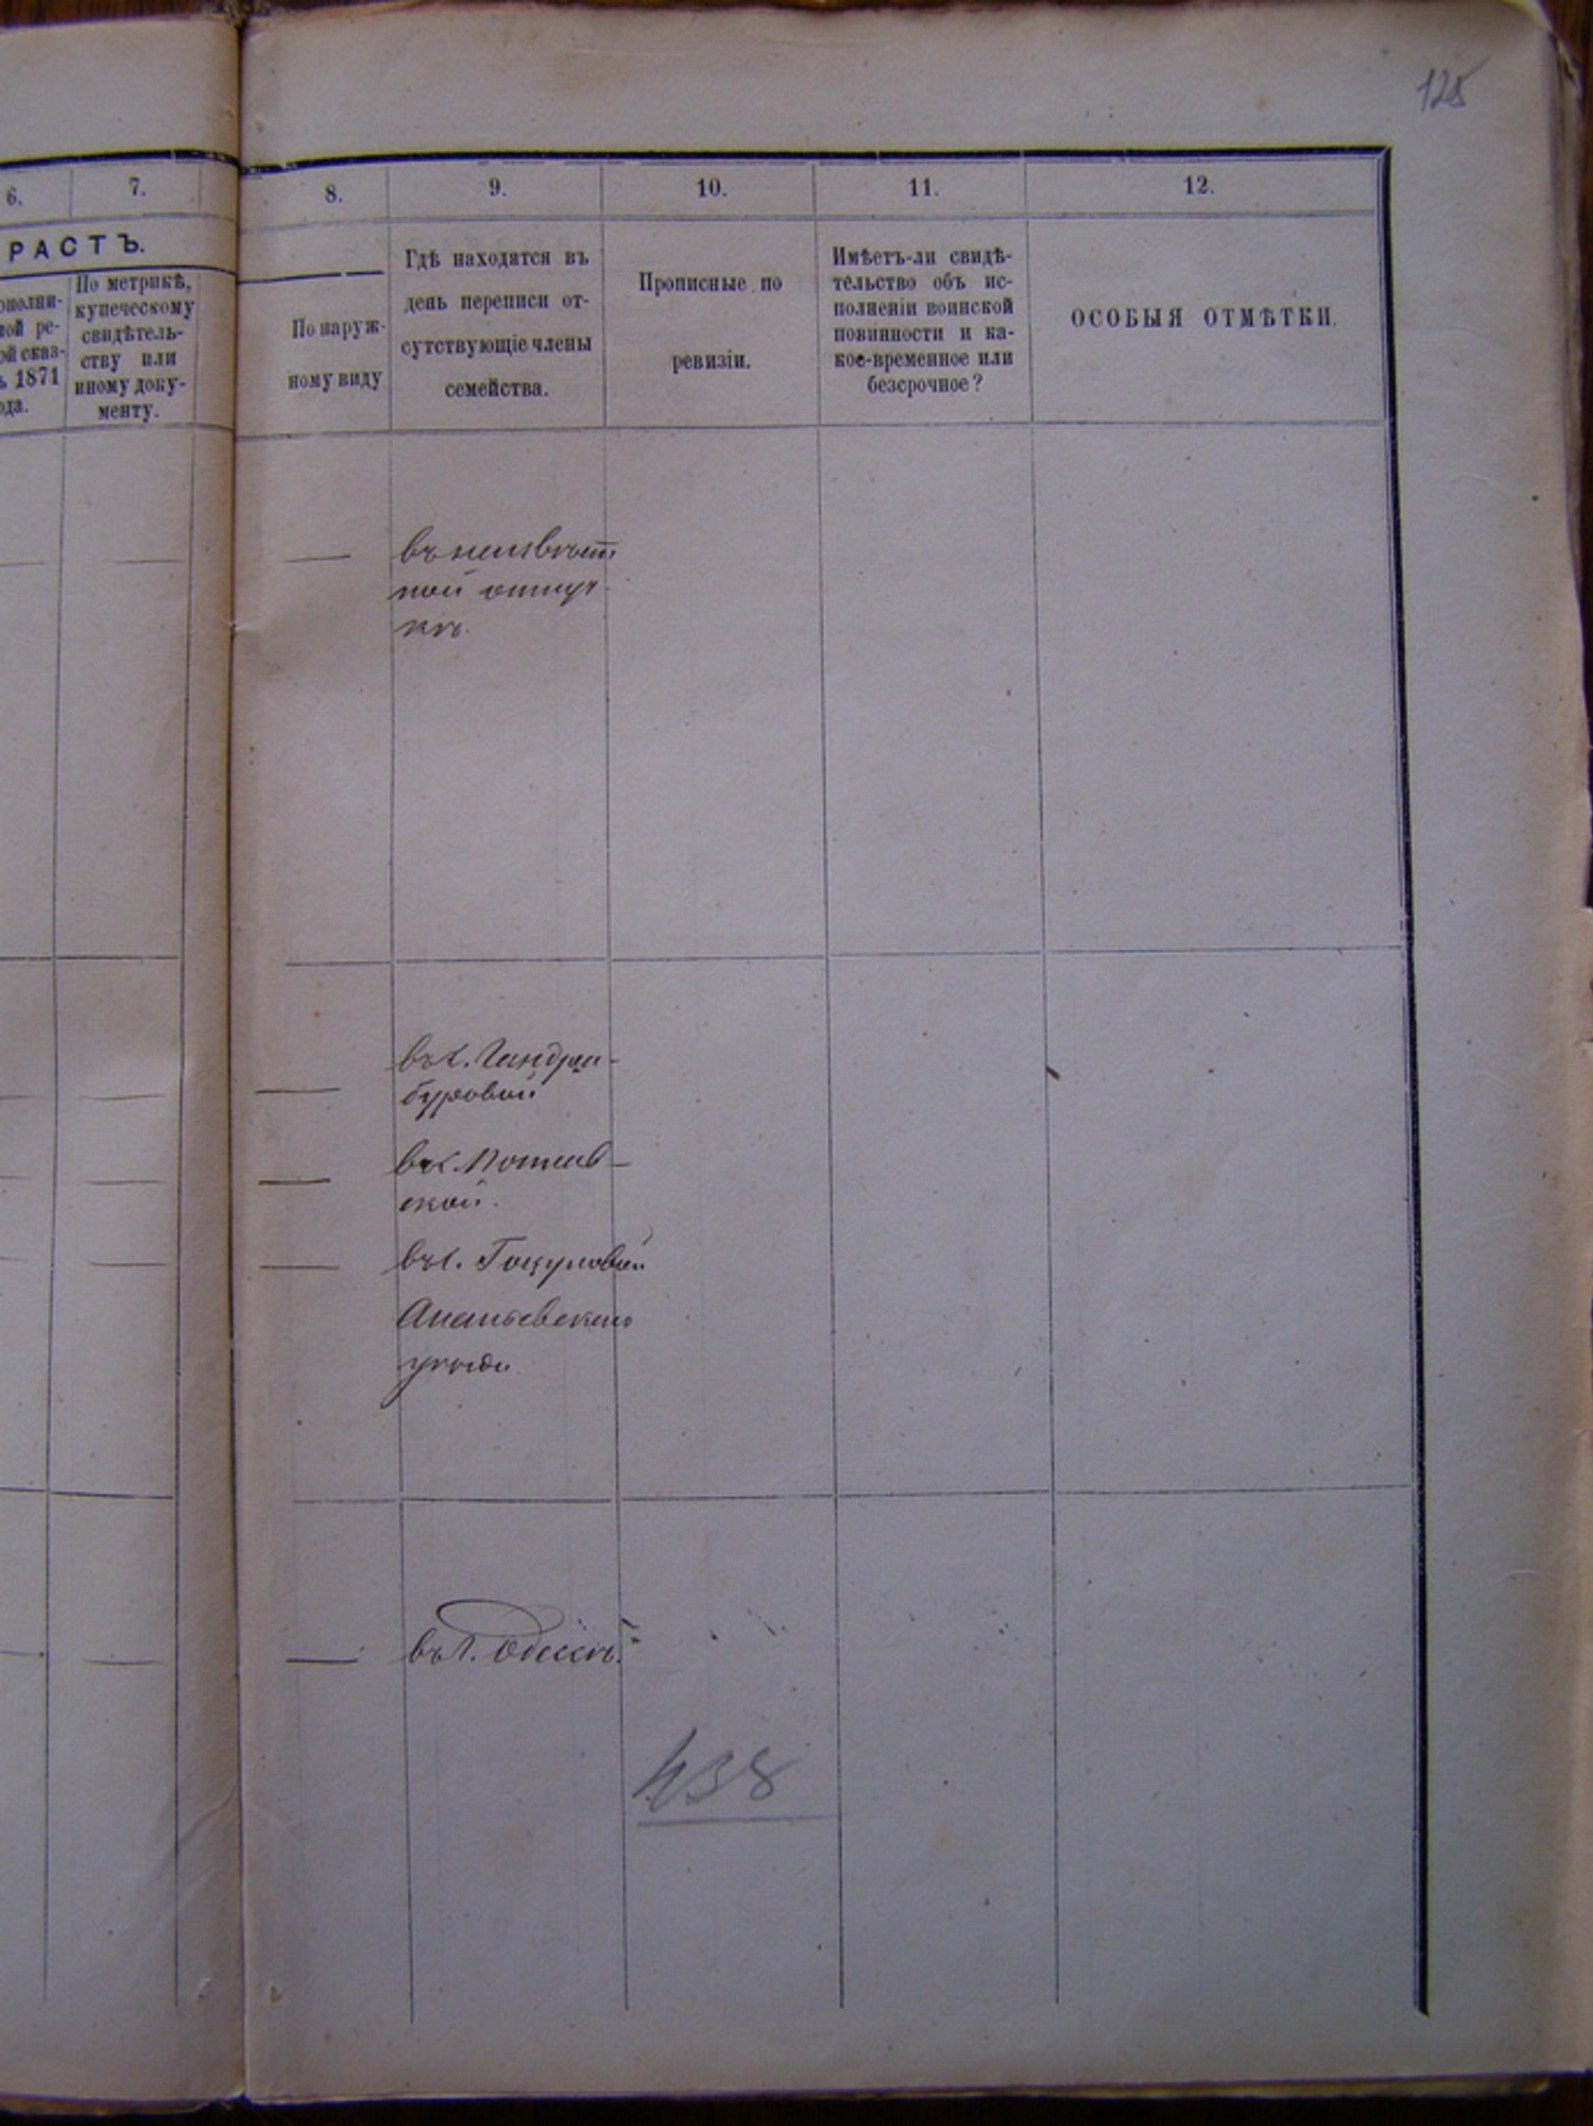 125
6. 7. 8. 9. 10. 11. 12.
РАСТЪ.
ополни-
ной ре-
ой сказ-
ъ 1871
ода.
По метрикѣ,
купеческому
свидѣтель-
ству или
иному доку-
менту.
По наруж-
ному виду
Гдѣ находятся въ
день переписи от-
сутствующіе члены
семейства.
Прописные по
ревизіи.
Имѣетъ-ли свидѣ-
тельство объ ис-
полненіи воинской
повинности и ка-
кое-временное или
безсрочное?
ОСОБЫЯ ОТМѢТКИ.
въ неизвѣст
ной отлуч
кѣ.
въ с. Гандра-
буровой
въ с.
ской.
въ с. Гоцуловой
Ананьевскаго
уѣзда
въ г. Одессѣ.
438